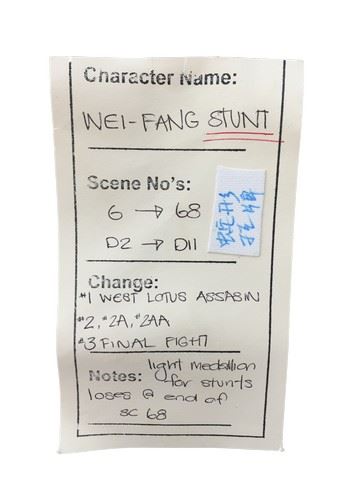 Character Name:
WEI-FANG STUNT
Scene No's:
6 → 68
D2 → D11
蛇形
挂牌
Change:
#1 WEST LOTUS ASSASIN
#2, #2A, #2AA
#3 FINAL FIGHT
Notes: light medallion
for stunts
loses @ end of
sc 68